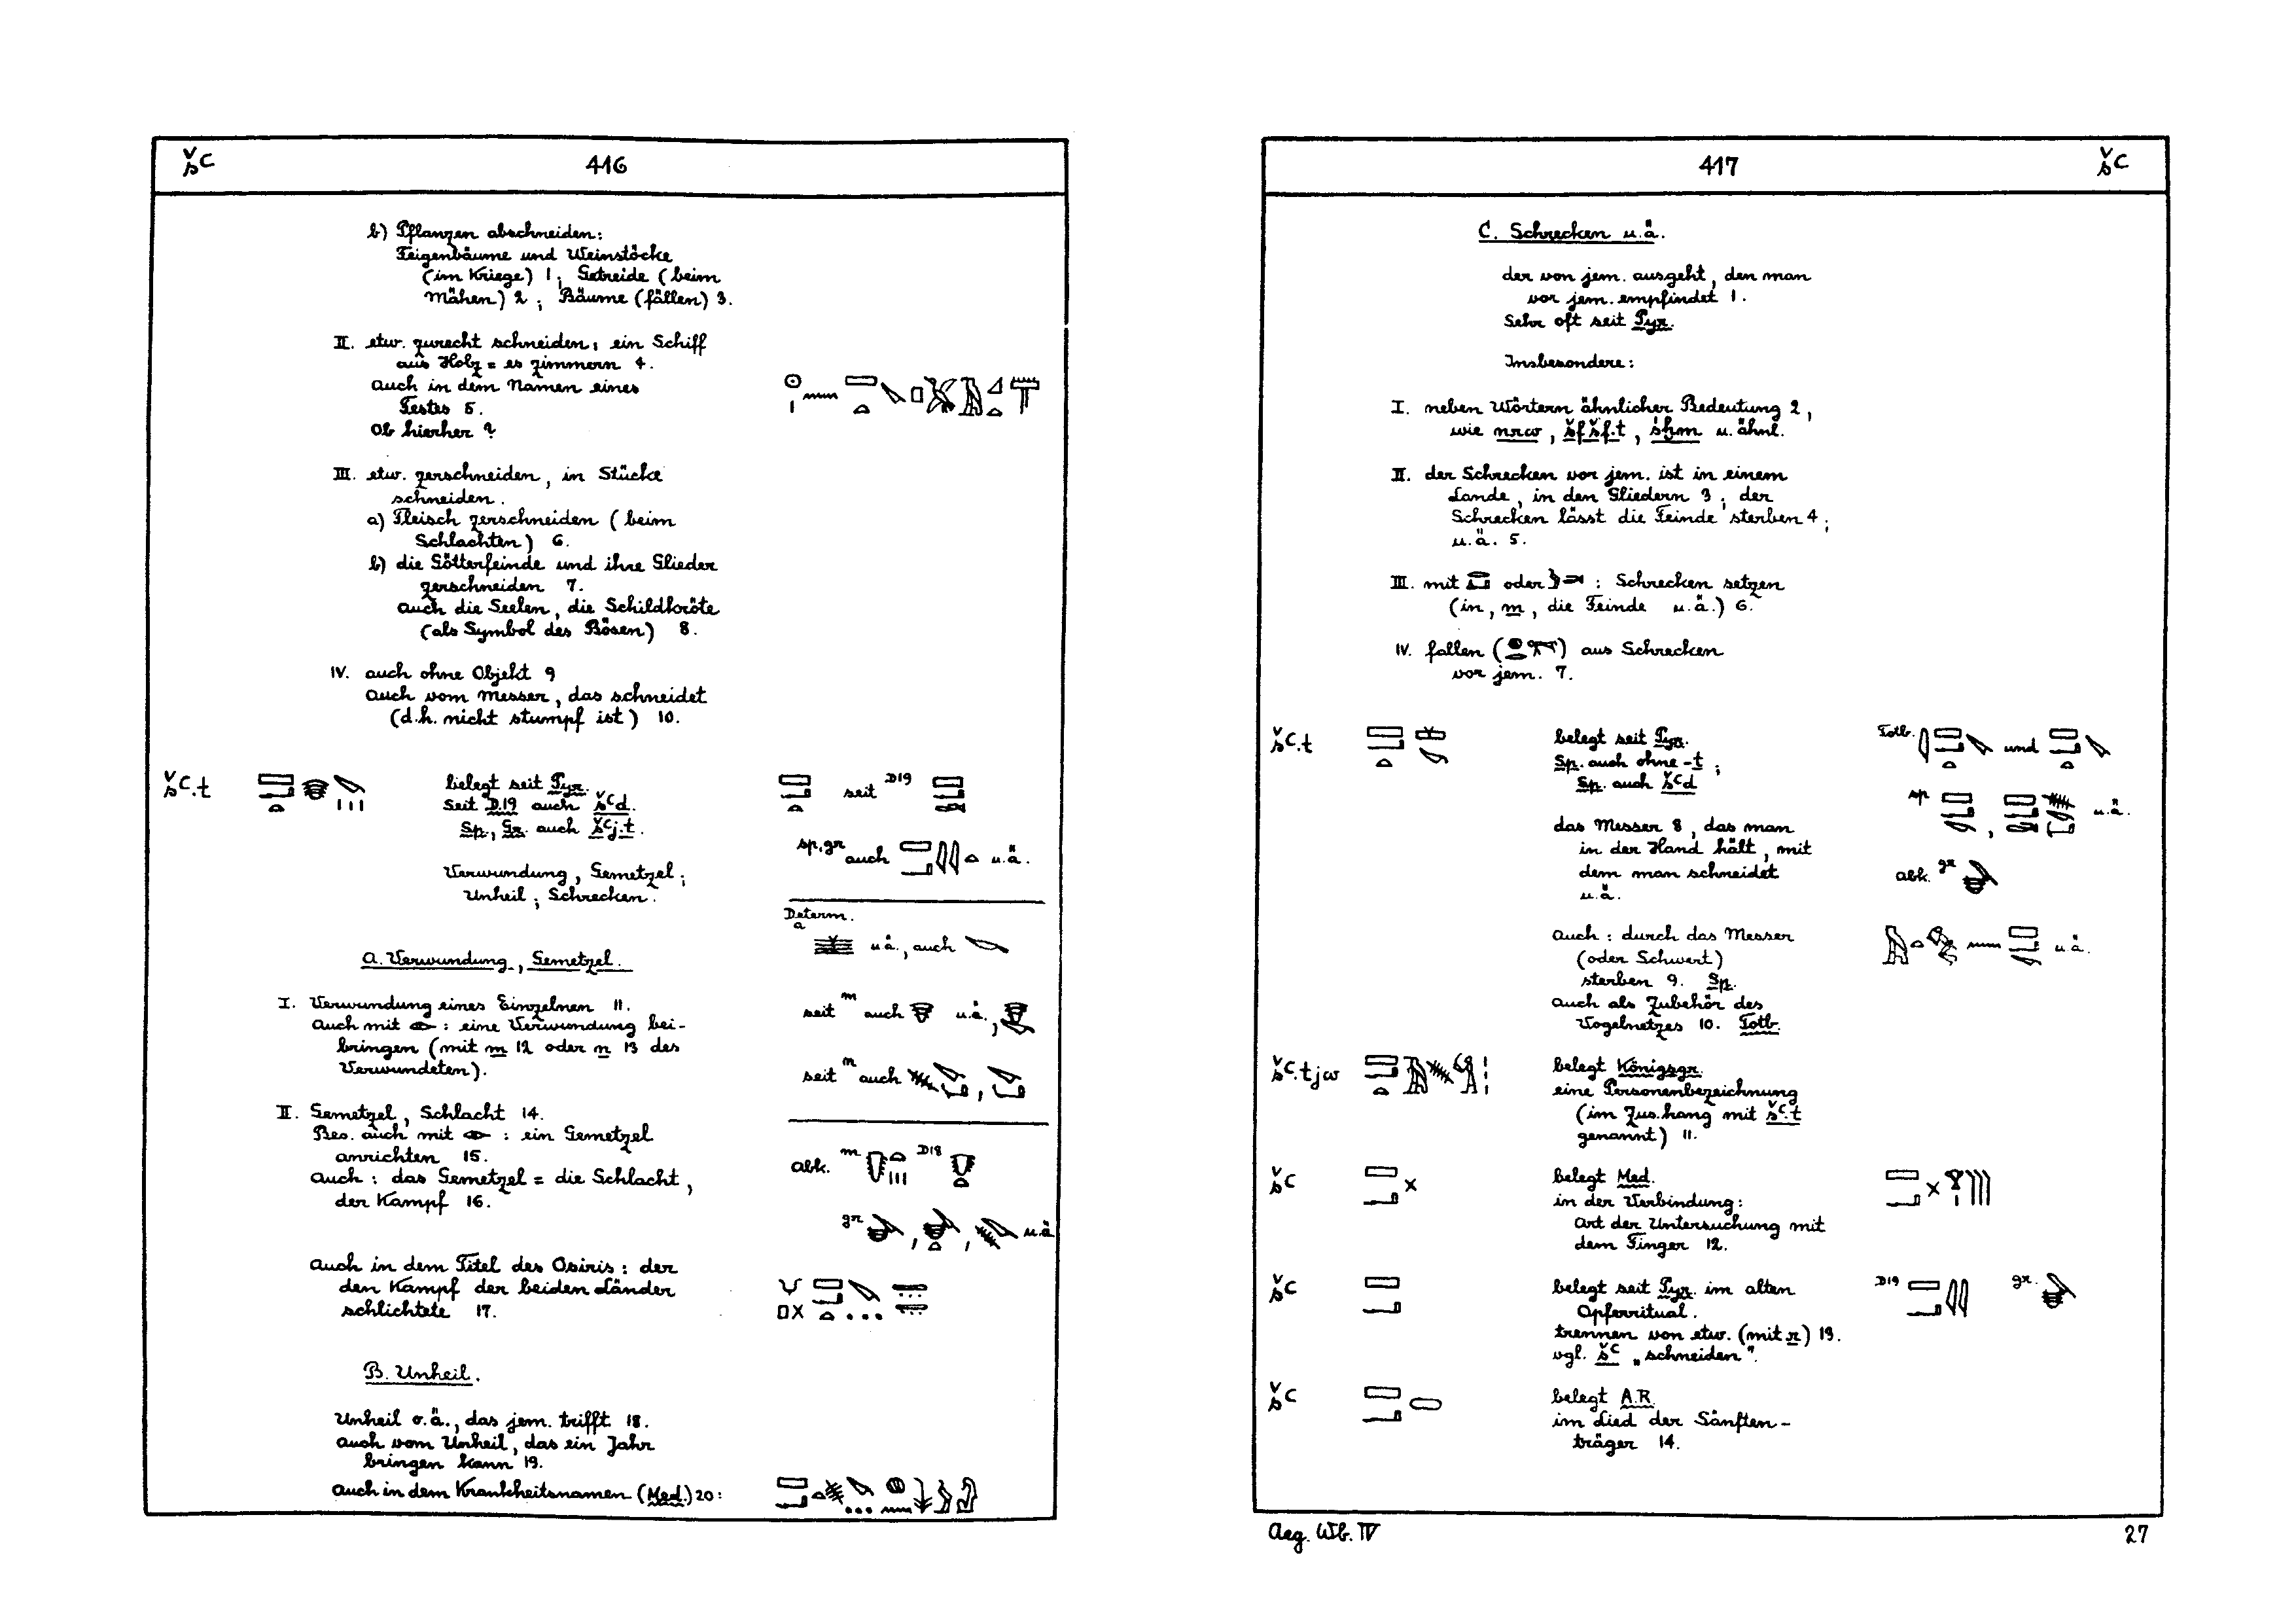 šꜥ
416
b) Pflanzen abschneiden:
Feigenbäume und Weinstöcke
(im Kriege) 1; Getreide (beim
Mähen) 2; Bäume (fällen) 3.
II. etw. zurecht schneiden: ein Schiff
aus Holz = es zimmern 4.
auch in dem Namen eines
Festes 5.
Ob hierher?
III. etw. zerschneiden, in Stücke
schneiden.
a) Fleisch zerschneiden (beim
Schlachten) 6.
b) die Götterfeinde und ihre Glieder
zerschneiden 7.
auch die Seelen, die Schildkröte
(als Symbol des Bösen) 8.
IV. auch ohne Objekt 9
auch vom Messer, das schneidet
(d.h. nicht stumpf ist) 10.
šꜥ.t
belegt seit Pyr.
seit D19 auch šꜥd.
Sp., Gr. auch šꜥj.t.
Verwundung, Gemetzel;
Unheil; Schrecken.
seit D19
sp, gr auch u.ä.
Determ.
a
u.ä., auch
seit m auch u.ä.,
seit m auch ,
abk. m D18
gr , , u.ä.
A. Verwundung, Gemetzel.
I. Verwundung eines Einzelnen 11.
Auch mit : eine Verwundung bei-
bringen (mit m 12 oder n 13 des
Verwundeten).
II. Gemetzel, Schlacht 14.
Bes. auch mit : ein Gemetzel
anrichten 15.
auch: das Gemetzel = die Schlacht,
der Kampf 16.
auch in dem Titel des Osiris: der
den Kampf der beiden Länder
schlichtete 17.
B. Unheil.
Unheil o.ä., das jem. trifft 18.
auch vom Unheil, das ein Jahr
bringen kann 19.
auch in dem Krankheitsnamen (Med.) 20:
417
šꜥ
C. Schrecken u.ä.
der von jem. ausgeht, den man
vor jem. empfindet 1.
Sehr oft seit Pyr.
Insbesondere:
I. neben Wörtern ähnlicher Bedeutung 2,
wie nrw, šfšf.t, śḫm u. ähnl.
II. der Schrecken vor jem. ist in einem
Lande, in den Gliedern 3; der
Schrecken lässt die Feinde sterben 4;
u.ä. 5.
III. mit oder : Schrecken setzen
(in, m, die Feinde u.ä.) 6.
IV. fallen ( ) aus Schrecken
vor jem. 7.
šꜥ.t
belegt seit Pyr.
Sp. auch ohne -t;
Sp. auch šꜥd
das Messer 8, das man
in der Hand hält, mit
dem man schneidet
u.ä.
auch: durch das Messer
(oder Schwert)
sterben 9. Sp.
auch als Zubehör des
Vogelnetzes 10. Totb.
Totb. und
sp , u.ä.
abk. gr
u.ä.
šꜥ.tjw
belegt Königsgr.
eine Personenbezeichnung
(im Zus.hang mit šꜥ.t
genannt) 11.
šꜥ
belegt Med.
in der Verbindung:
Art der Untersuchung mit
dem Finger 12.
šꜥ
belegt seit Pyr. im alten
Opferritual.
trennen von etw. (mit r) 13.
vgl. šꜥ „schneiden".
D19 gr.
šꜥ
belegt A.R.
im Lied der Sänften-
träger 14.
Aeg. Wb. IV
27